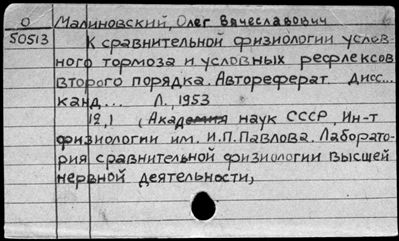 О Малиновский, Олег Вячеславович
50513 К сравнительной физиологии услов-
ного тормоза и условных рефлексов
второго порядка. Автореферат дисс...
канд... Л., 1953
12,1 (Академия наук СССР, Ин-т
физиологии им. И.П.Павлова. Лаборато-
рия сравнительной физиологии высшей
нервной деятельности,